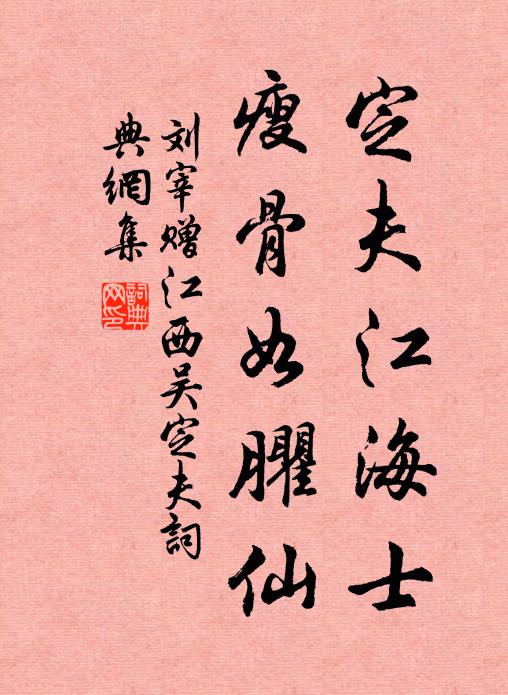 定夫江海士
瘦骨如臞仙
刘宰赠江西吴定夫詞
典網集
詞典網印